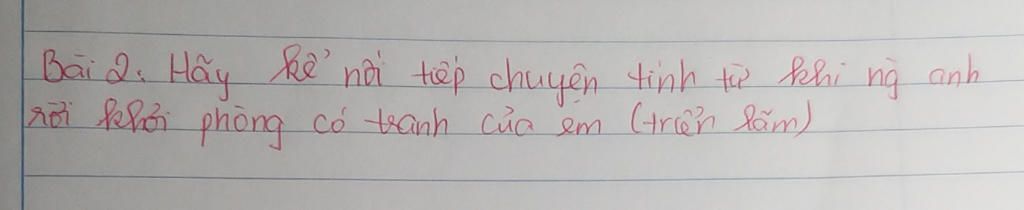 Bài 2. Hãy kể nối tiếp chuyện tinh từ khi ng anh
rời khỏi phòng có tranh của em (triển lãm)